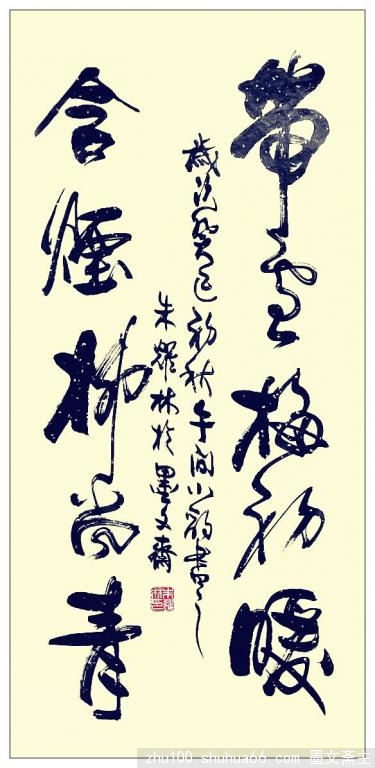 帶雪梅初暖
含煙柳尚青
歲次癸巳初秋午间小酌書之
朱耀林於墨文齋
zhu100.shuhua66.com 墨文斋主